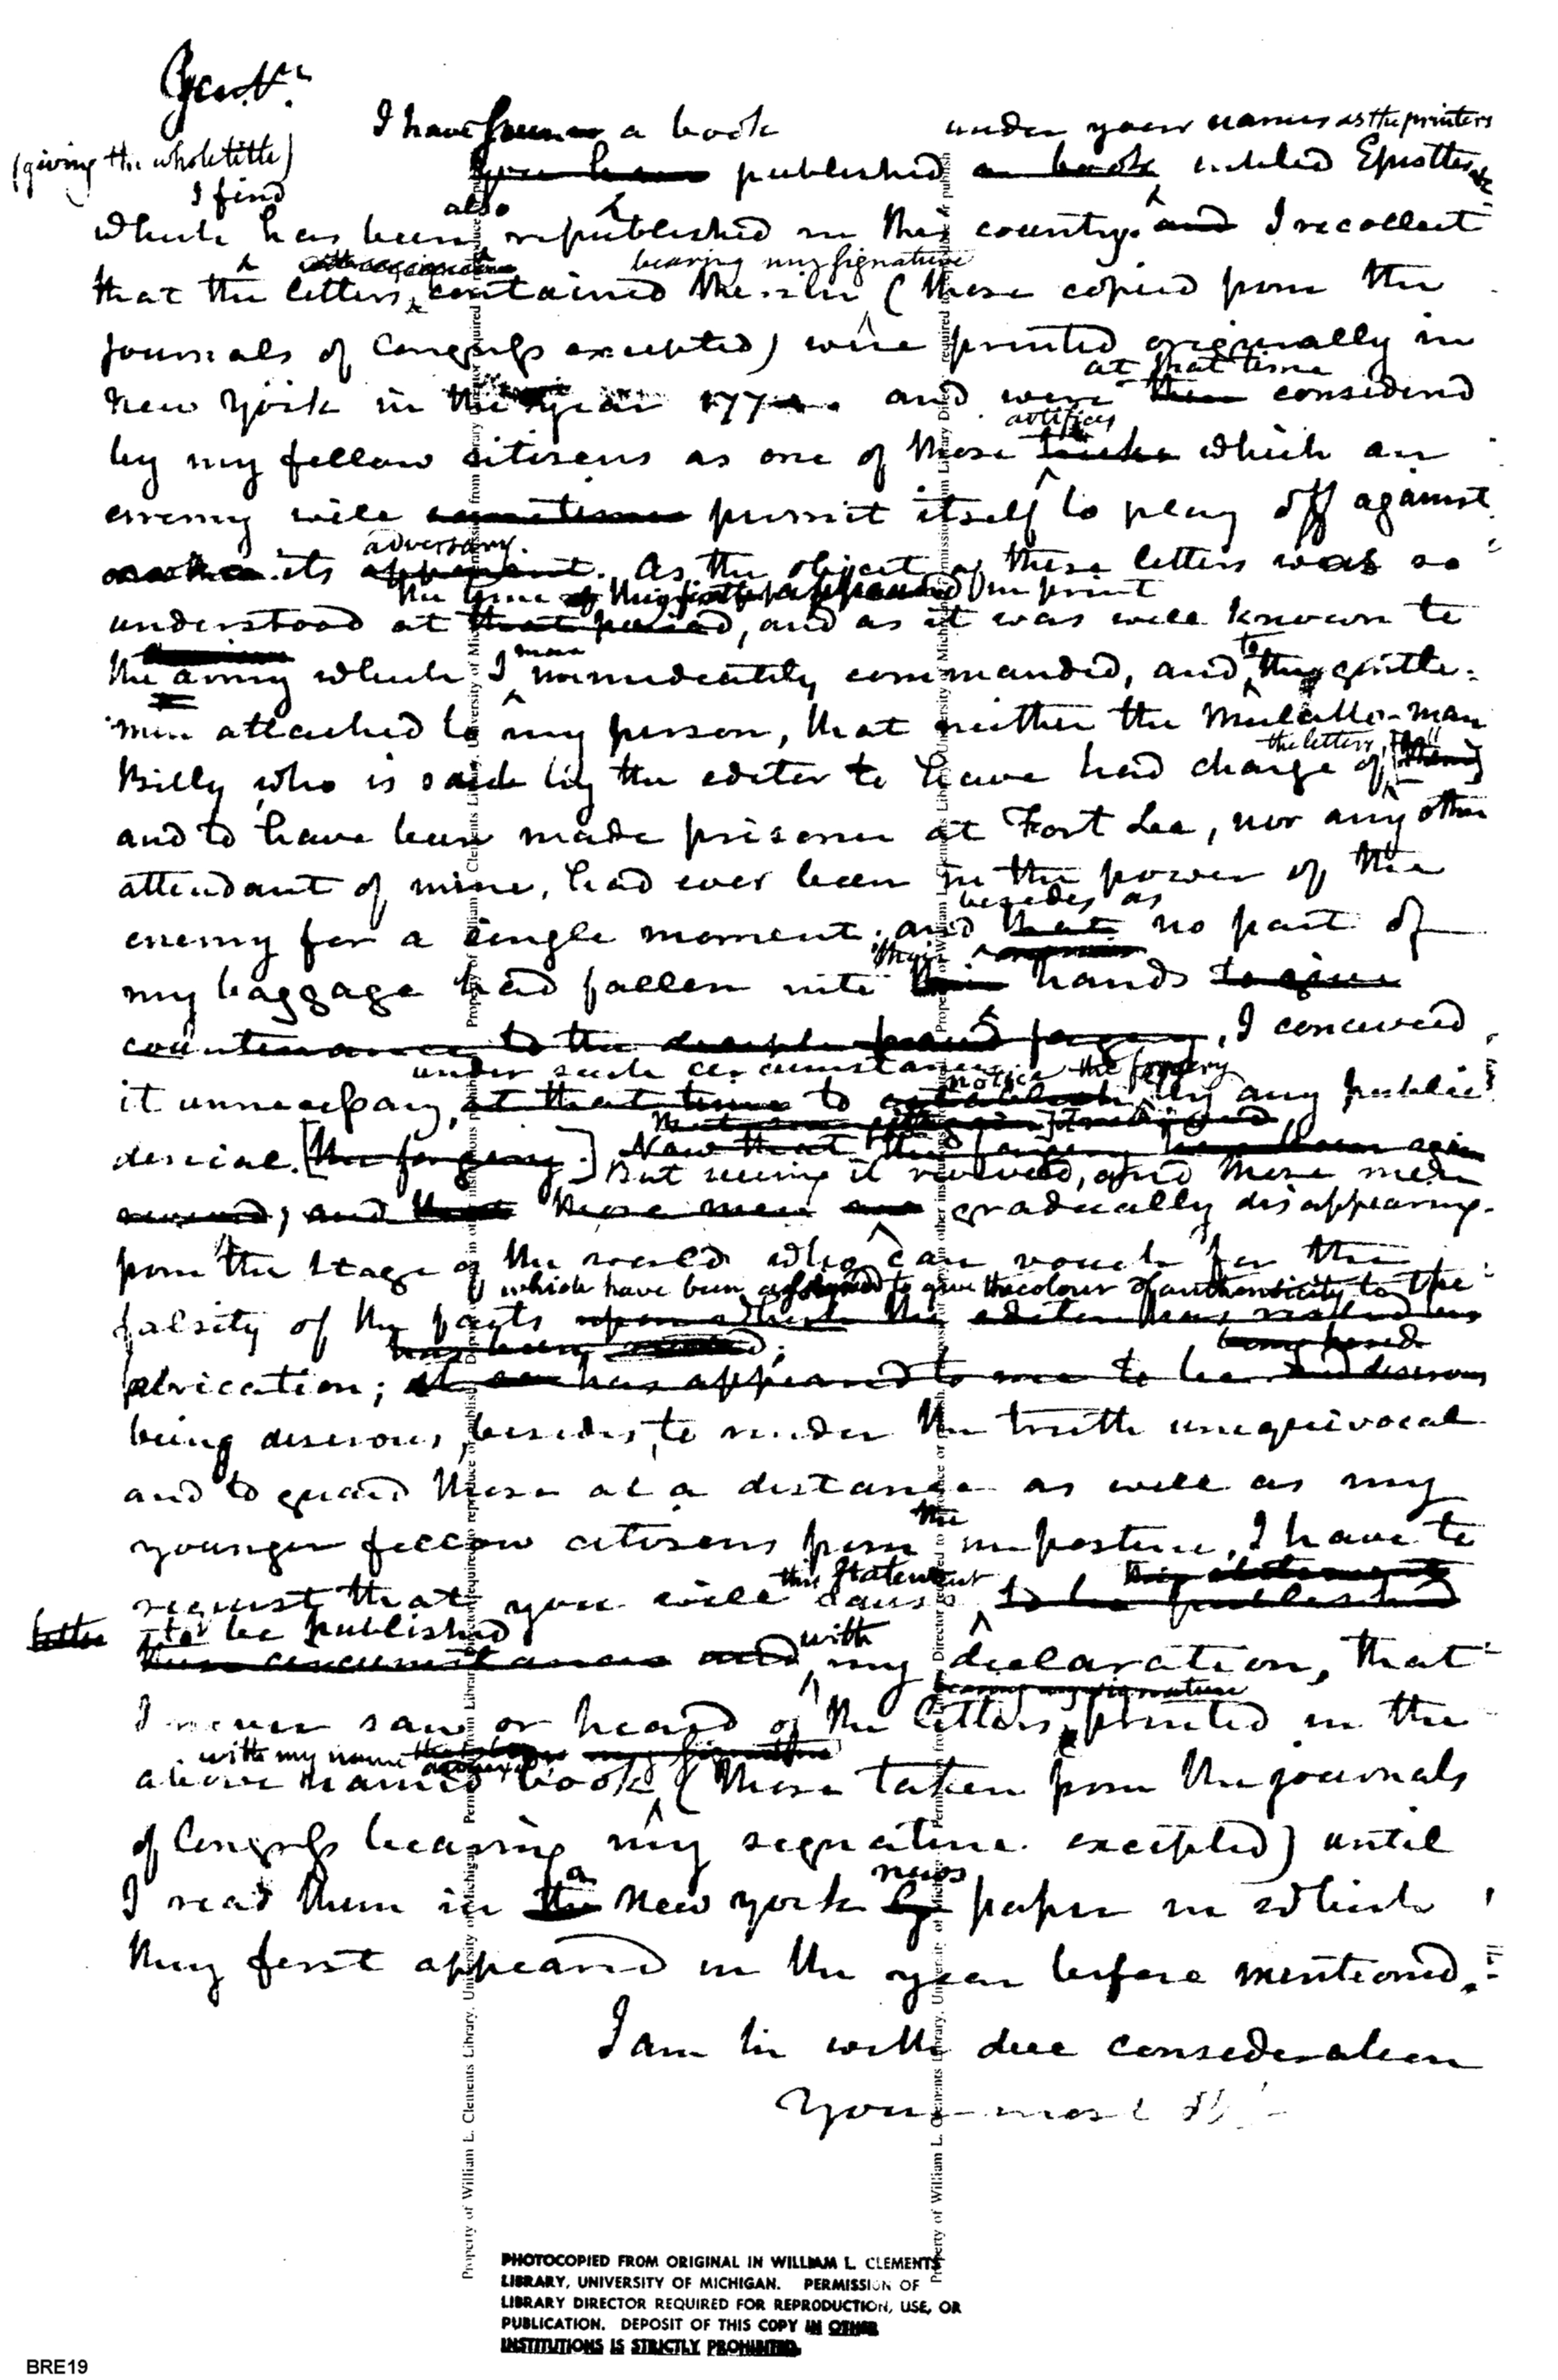 Gentn.
I have seen a book under your names as the printers
(giving the whole title) you have published a book entitled Epistles &c
I find also
which has been republished in this country. and I recollect
bearing my signature
that the letters contained therein (those copied from the
journals of Congress excepted) were printed originally in
at that time
New York in the year 177 and were then considered
artifices
by my fellow citizens as one of those tricks which an
enemy will sometimes permit itself to play off against
adversary.
its opponent. As the object of these letters was so
the time of their first appearance in print
understood at that period, and as it was well known to
more to
the army which I immediately commanded, and the gentle-
men attached to my person, that neither the Mulatto-man
the letters,
Billy who is said by the editor to have had charge of [them]
and to have been made prisoner at Fort Lee, nor any other
attendant of mine, had ever been in the power of the
besides as
enemy for a single moment, and that no part of
their
my baggage had fallen into their hands to give
countenance to the forgery, I conceived
under such circumstances notice the forgery
it unnecessary, at that time to establish by any public
denial. [the forgery.] Now that the forgery has been again
But seeing it revived, and those men
revived, and that those men are gradually disappearing
from the stage of the world who can vouch for the
which have been assigned to give the colour of authenticity to the
falsity of the facts upon which the editor has
has been
fabrication; it has appeared to me to be and desirous
being desirous, besides, to render the truth unequivocal
and to guard those at a distance as well as my
the
younger fellow citizens from imposture, I have to
this statement this statement
request that you will cause to be published
letter to be published
with
these circumstances and my declaration, that
bearing my signature
I never saw or heard of the letters, printed in the
with my name annexed that bear my signature
above named book (those taken from the journals
of Congress bearing my signature excepted) until
a news
I read them in the New York paper in which
they first appeared in the year before mentioned.
I am Sir with due consideration
Your most
Property of William L. Clements Library, University of Michigan.
Property of William L. Clements Library, University of Michigan.
PHOTOCOPIED FROM ORIGINAL IN WILLIAM L. CLEMENTS
LIBRARY, UNIVERSITY OF MICHIGAN. PERMISSION OF
LIBRARY DIRECTOR REQUIRED FOR REPRODUCTION, USE, OR
PUBLICATION. DEPOSIT OF THIS COPY IN OTHER
INSTITUTIONS IS STRICTLY PROHIBITED.
BRE19